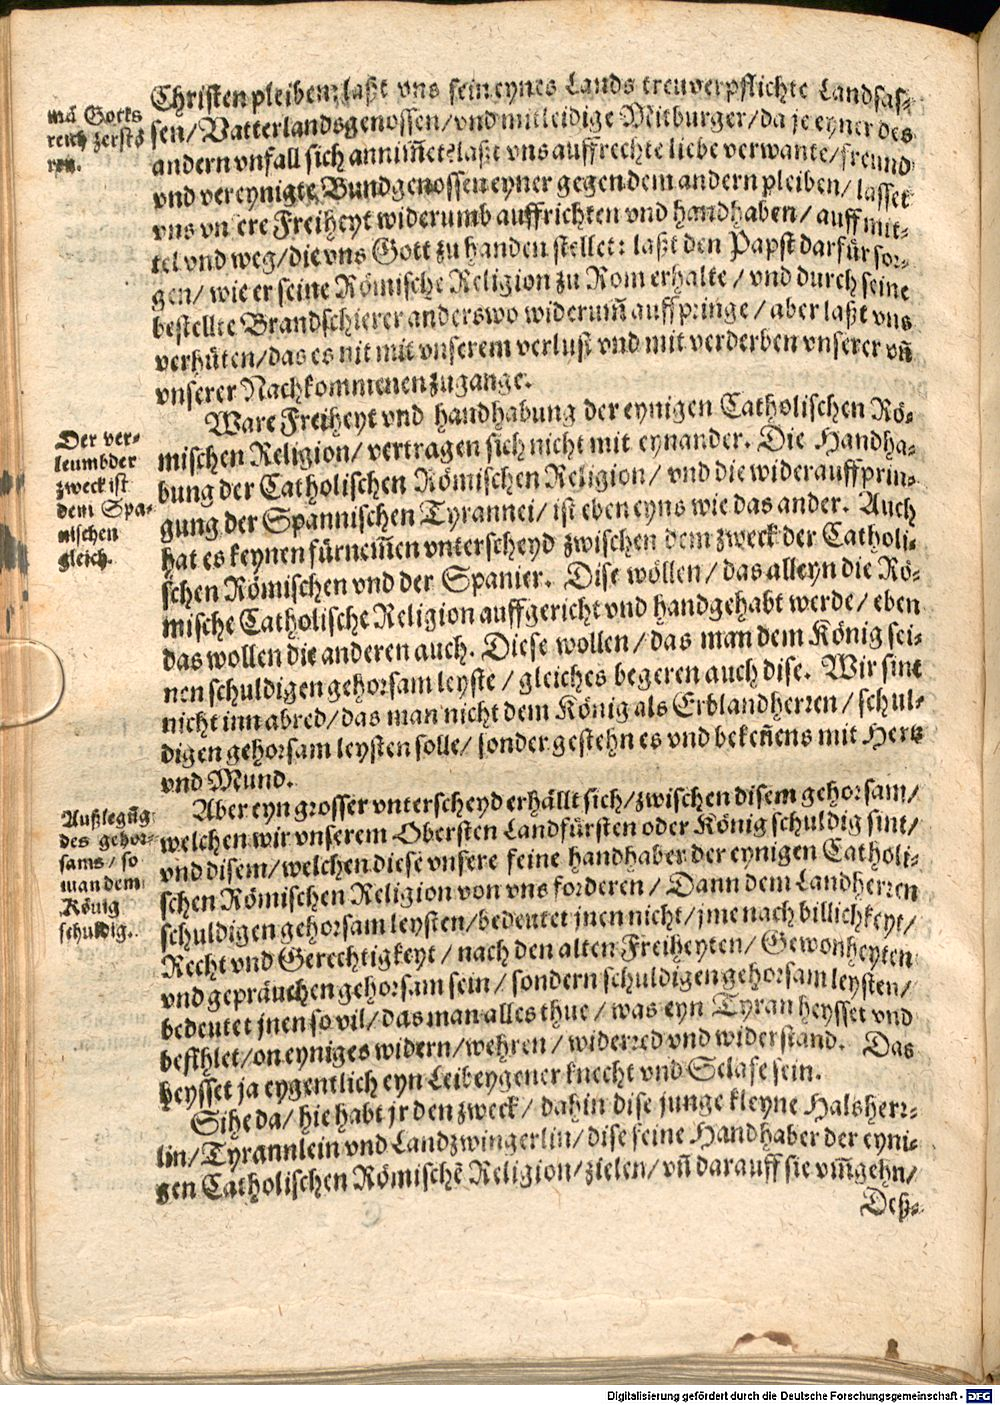 Christen pleiben: laßt vns fein eynes Lands treuverpflichte Landsas-
mā Gotts
reich zerstö
ren.
sen/ Vatterlandsgenossen/ vnd mitleidige Mitburger/ da je eyner des
andern vnfall sich annim̃et: laßt vns auffrechte liebe verwante/ freund
vnd vereynigte Bundgenossen eyner gegen dem andern pleiben/ lasset
vns vnsere Freiheyt widerumb auffrichten vnd handhaben/ auff mit-
tel vnd weg/ die vns Gott zu handen stellet: laßt den Papst darfür sor-
gen/ wie er seine Römische Religion zu Rom erhalte/ vnd durch seine
bestellte Brandschierer anderswo widerum̃ auffspringe/ aber laßt vns
verhüten/ das es nit mit vnserem verlust vnd mit verderben vnserer vn̄
vnserer Nachkommenen zugange.
Ware Freiheyt vnd handhabung der eynigen Catholischen Rö-
Der ver-
leumbder
zweck ist
dem Spa-
nischen
gleich.
mischen Religion/ vertragen sich nicht mit eynander. Die Handha-
bung der Catholischen Römischen Religion/ vnd die widerauffprin-
gung der Spannischen Tyrannei/ ist eben eyns wie das ander. Auch
hat es keynen fürnem̃en vnterscheyd zwischen dem zweck der Catholi-
schen Römischen vnd der Spanier. Dise wöllen/ das alleyn die Rö-
mische Catholische Religion auffgericht vnd handgehabt werde/ eben
das wollen die anderen auch. Diese wollen/ das man dem König sei-
nen schuldigen gehorsam leyste/ gleiches begeren auch dise. Wir sint
nicht inn abred/ das man nicht dem König als Erblandherren/ schul-
digen gehorsam leysten solle/ sonder gestehn es vnd bekeñens mit Hertz
vnd Mund.
Aber eyn grosser vnterscheyd erhällt sich/ zwischen disem gehorsam/
Außlegūg
des gehor-
sams/ so
man dem
König
schuldig.
welchen wir vnserem Obersten Landfürsten oder König schuldig sint/
vnd disem/ welchen diese vnsere feine handhaber der eynigen Catholi-
schen Römischen Religion von vns forderen/ Dann dem Landherren
schuldigen gehorsam leysten/ bedeutet jnen nicht/ jme nach billichkeyt/
Recht vnd Gerechtigkeyt/ nach den alten Freiheyten/ Gewonheyten
vnd gepräuchen gehorsam sein/ sondern schuldigen gehorsam leysten/
bedeutet jnen so vil/ das man alles thue/ was eyn Tyran heysset vnd
befihlet/ on eyniges widern/ wehren/ widerred vnd widerstand. Das
heysset ja eygentlich eyn Leibeygener knecht vnd Sclafe sein.
Sihe da/ hie habt jr den zweck/ dahin dise junge kleyne Halsherr-
lin/ Tyrannlein vnd Landzwingerlin/ dise feine Handhaber der eyni-
gen Catholischen Römischē Religion/ zielen/ vn̄ darauff sie vm̃gehn/
Deß-
Digitalisierung gefördert durch die Deutsche Forschungsgemeinschaft - DFG